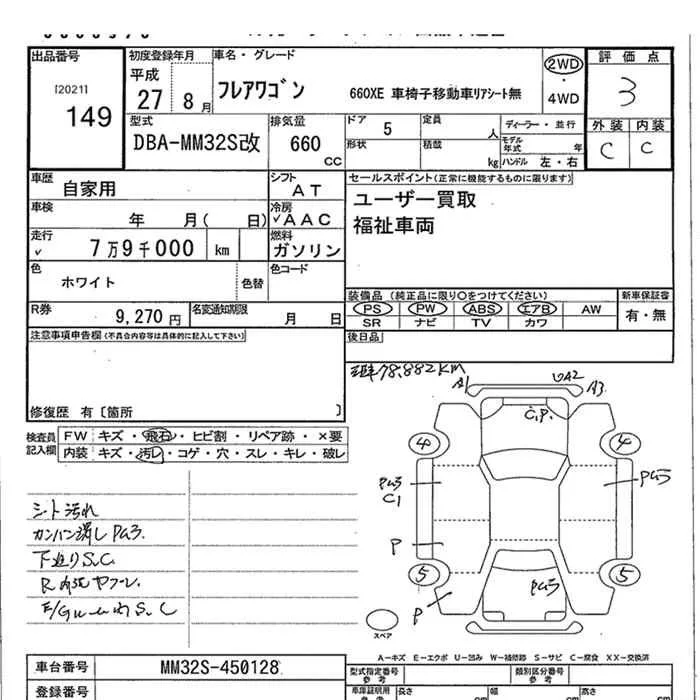 出品番号 初度登録年月 車名・グレード 評価点
[2021] 149
平成 27 8月
フレアワゴン 660XE 車椅子移動車リアシート無
2WD・4WD
3
型式 DBA-MM32S改
排気量 660 CC
ドア 5 定員 人 ディーラー・並行
形状 積載 kg モデル年式 年 ハンドル 左・右
外装 内装
C C
車歴 自家用
シフト AT
セールスポイント(正常に機能するものに限ります)
ユーザー買取
福祉車両
車検 年 月( 日)
冷房 ✓AAC
走行 ✓ 7万9千000 km
燃料 ガソリン
色 ホワイト 色替
色コード
装備品 (純正品に限り○をつけてください) 新車保証書
PS PW ABS エアB AW 有・無
SR ナビ TV カワ
R券 9,270円 名変通知期限 月 日
注意事項申告欄(不具合内容等は具体的に記入して下さい)
後日品
78,882KM
修復歴 有〔箇所 〕
A1 UA2 A3
C.P.
検査員記入欄 FW キズ・飛石・ヒビ割・リペア跡・×要
内装 キズ・汚レ・コゲ・穴・スレ・キレ・破レ
4 4
PA3 C1 PA5
シート汚れ
カンバン消しPA3.
下廻りS.C.
P
5 PA5 5
P
スペア
A-キズ E-エクボ U-凹み W-補修跡 S-サビ C-腐食 XX-交換済
車台番号 MM32S-450128
型式指定番号 参考 類別区分番号 参考
登録番号
車庫証明用 参考 長さ cm 幅 cm 高さ cm